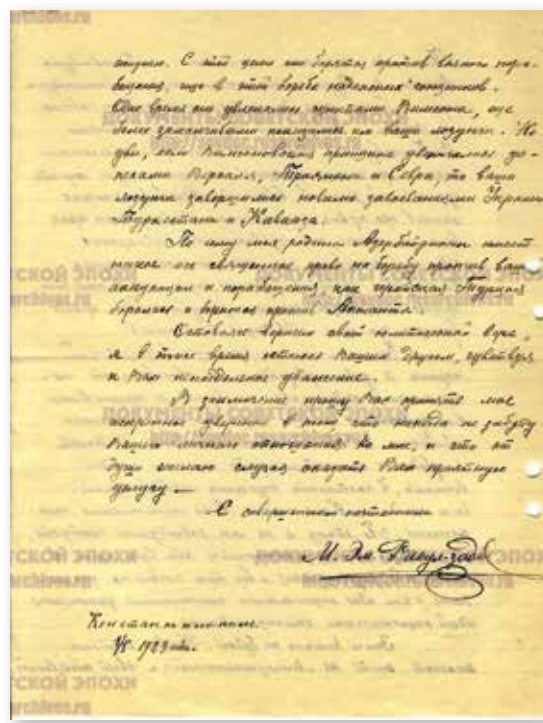 С этой целью они борются против
бощения, ища в этой борьбе надежных союзников.
Одно время они увлекались пунктами Вильсона, еще
более заманчивыми показались им Ваши лозунги. Но
увы, если Вильсоновские принципы увенчались
Версаля, Трианона и Севра, то ваши
лозунги завершились новыми завоеваниями Украины
Туркестана и Кавказа.
По ему моя родина Азербайджан имеет
такое же священное право на борьбу против Вашей
оккупации и порабощения, как турецкая
боролась и борется против Антанты.
Оставаясь верным своей политической вере,
я в тоже время остаюсь Вашим другом, чувствуя
к Вам неподдельное уважение.
В заключение прошу Вас принять мое
искреннее уверение в том, что никогда не забуду
Вашего личного отношения ко мне, и что от
души желаю случая оказать Вам приятную
услугу —
С совершенным почтением
М. Эм. Расул-Задэ
Константинополь.
1923
ДОКУМЕНТЫ СОВЕТСКОЙ ЭПОХИ